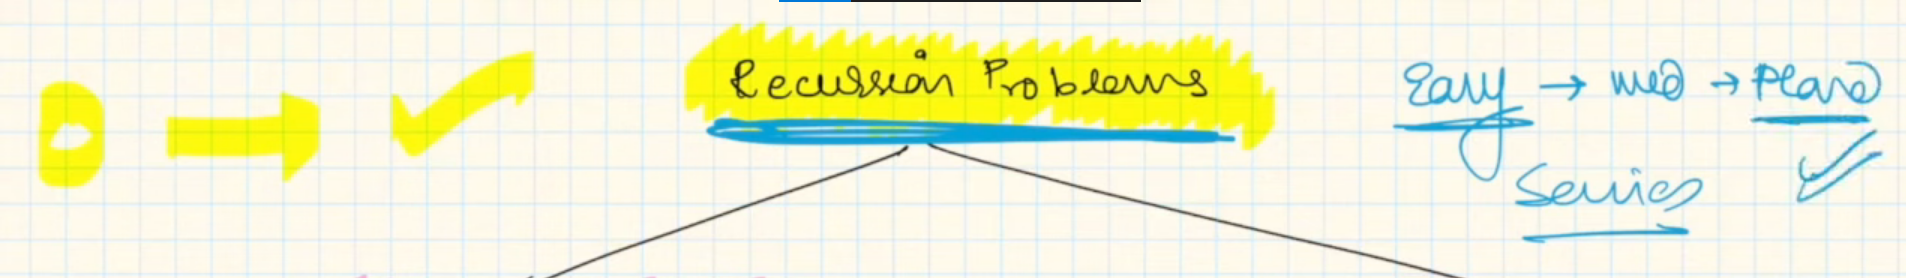 Recursion Problems
Easy → med → Hard
Series